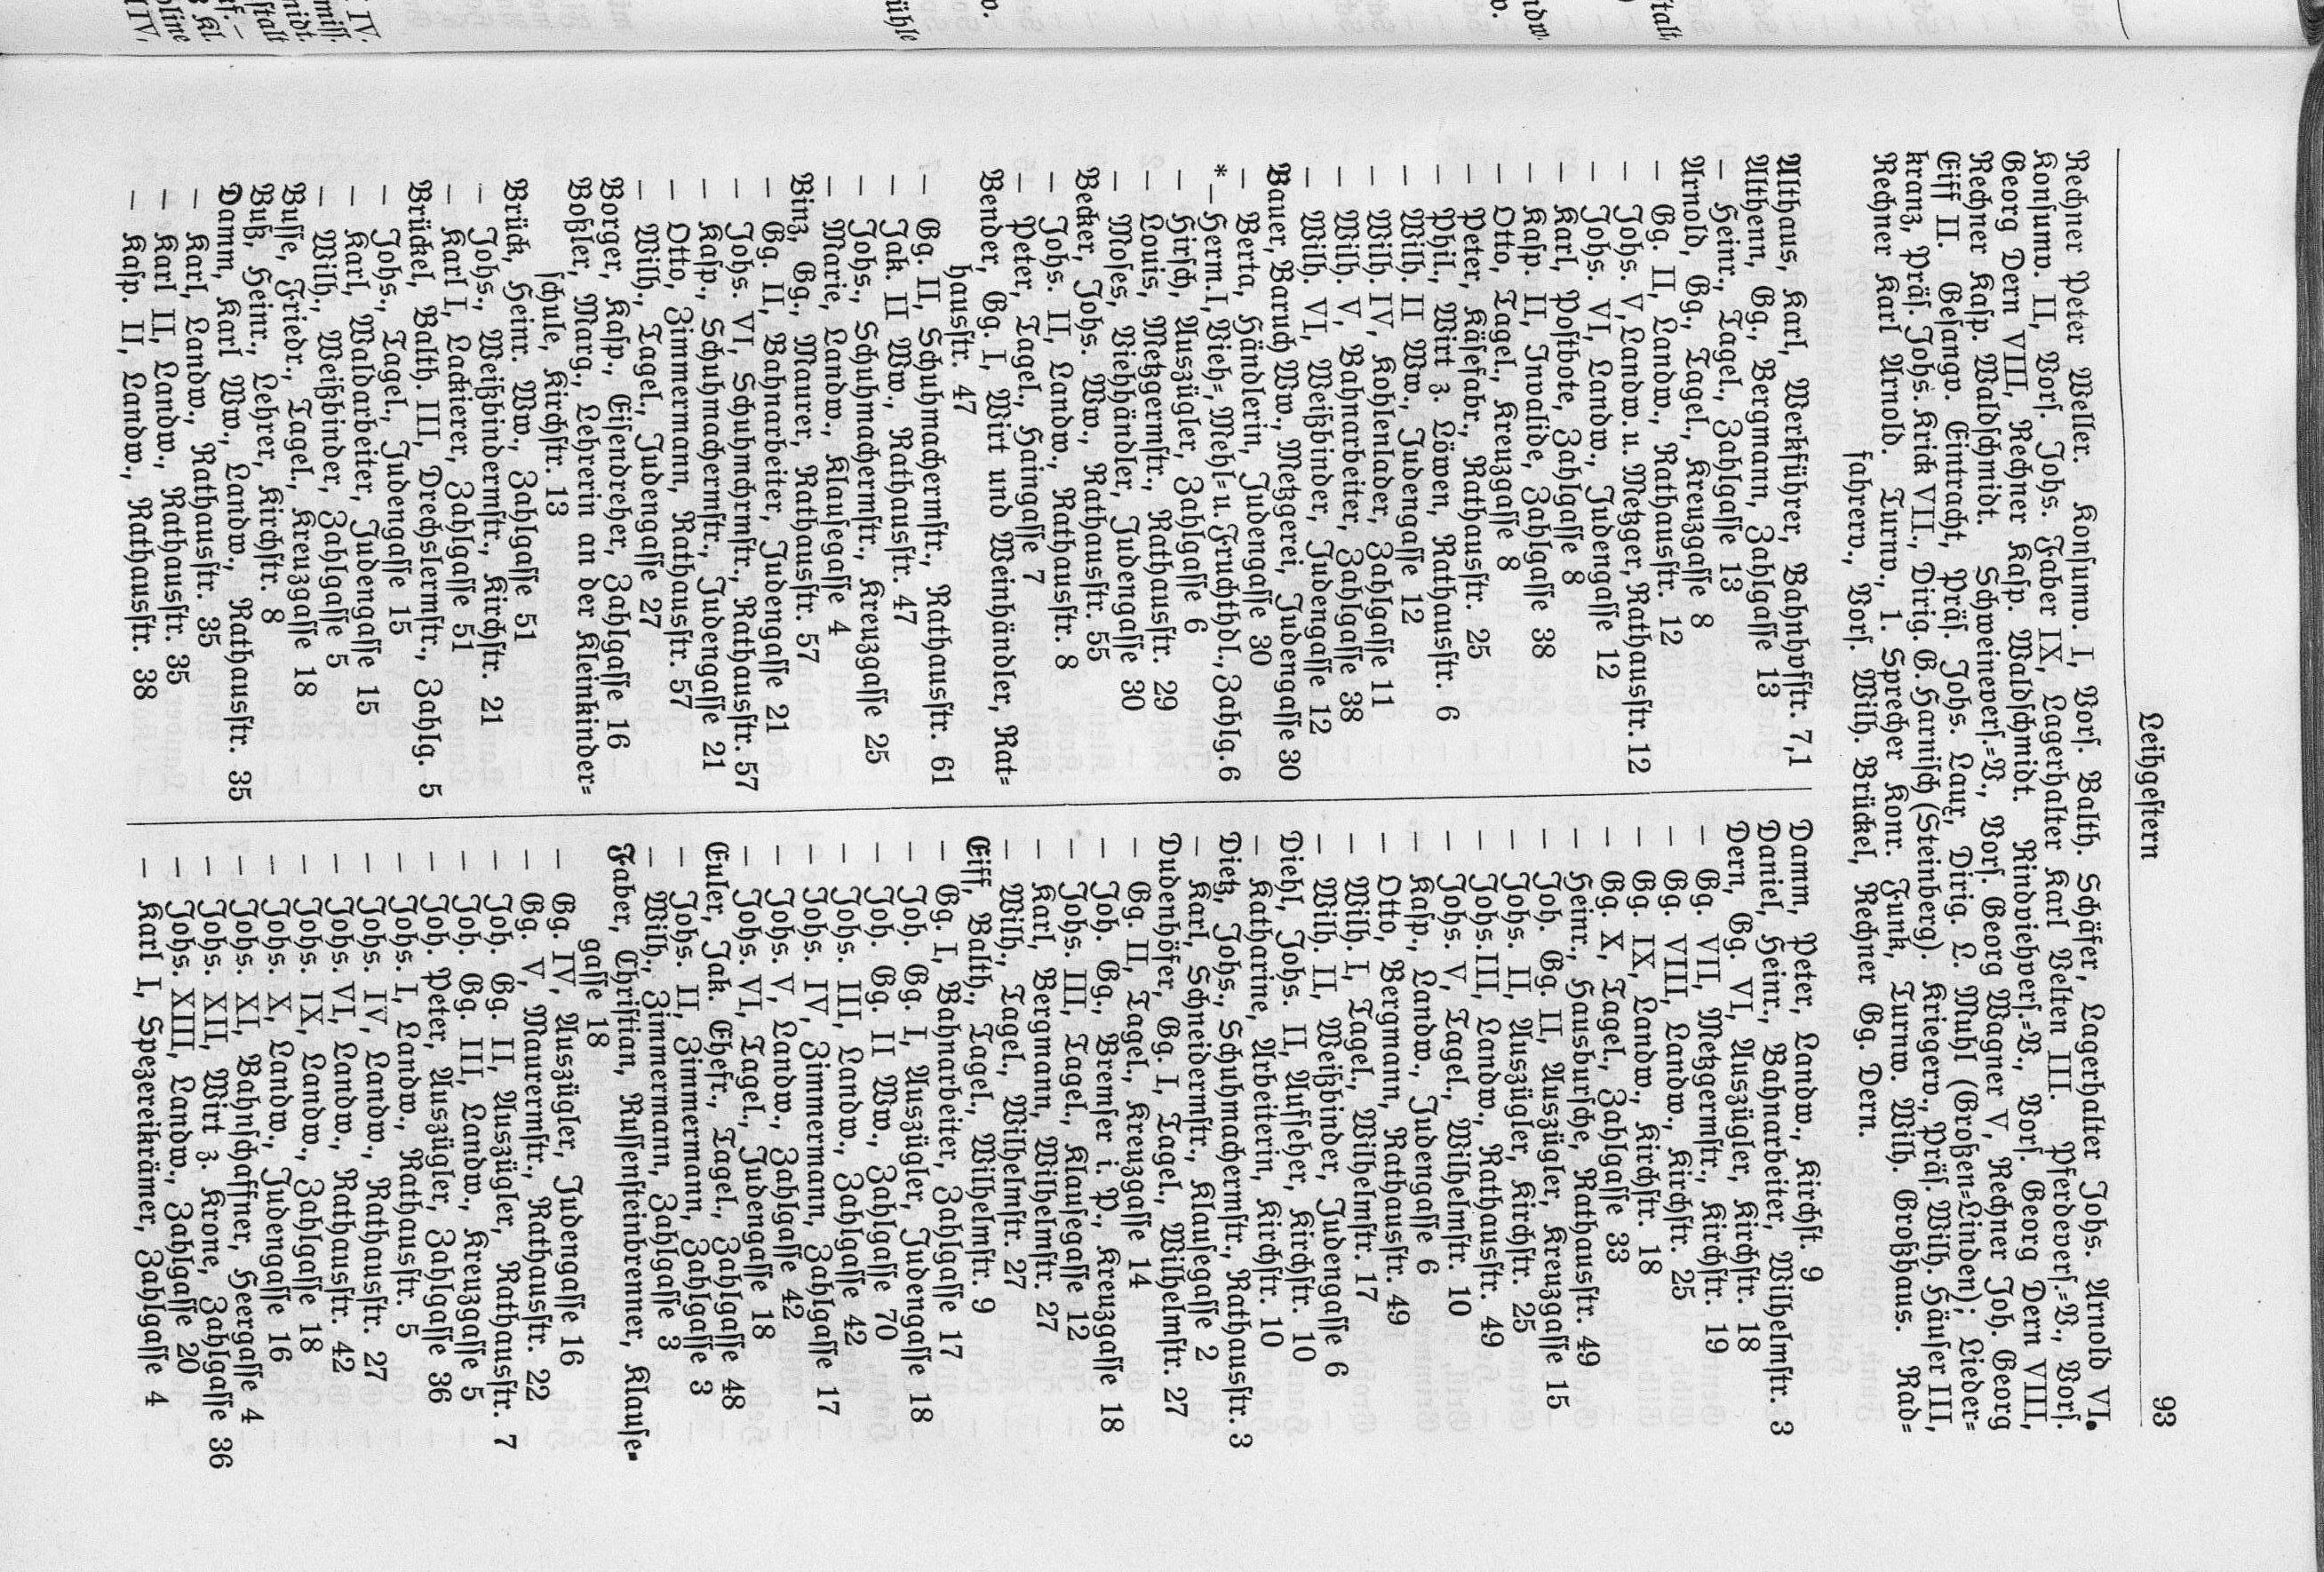 Leihgestern
93
Rechner Peter Weller. Konsumv. I, Vors. Balth. Schäfer, Lagerhalter Johs. Arnold VI.
Konsumv. II, Vors. Johs. Faber IX, Lagerhalter Karl Velten III. Pferdevers.=V., Vors.
Georg Dern VIII, Rechner Kasp. Waldschmidt. Rindviehvers.=V., Vors. Georg Dern VIII,
Rechner Kasp. Waldschmidt. Schweinevers.=V., Vors. Georg Wagner V, Rechner Joh. Georg
Eiff II. Gesangv. Eintracht, Präs. Johs. Laux, Dirig. L. Muhl (Großen=Linden); Lieder=
kranz, Präs. Johs. Krick VII., Dirig. G. Harnisch (Steinberg). Kriegerv., Präs. Wilh. Häuser III,
Rechner Karl Arnold. Turnv., 1. Sprecher Konr. Funk, Turnw. Wilh. Großhaus. Rad=
fahrerv., Vors. Wilh. Brückel, Rechner Gg. Dern.
Althaus, Karl, Werkführer, Bahnhofstr. 7,1
Althenn, Gg., Bergmann, Zahlgasse 13
— Heinr., Tagel., Zahlgasse 13
Arnold, Gg., Tagel., Kreuzgasse 8
— Gg. II, Landw., Rathausstr. 12
— Johs. V, Landw. u. Metzger, Rathausstr. 12
— Johs. VI, Landw., Judengasse 12
— Karl, Postbote, Zahlgasse 8
— Kasp. II, Invalide, Zahlgasse 38
— Otto, Tagel., Kreuzgasse 8
— Peter, Käsefabr., Rathausstr. 25
— Phil., Wirt z. Löwen, Rathausstr. 6
— Wilh. II Ww., Judengasse 12
— Wilh. IV, Kohlenlader, Zahlgasse 11
— Wilh. V, Bahnarbeiter, Zahlgasse 38
— Wilh. VI, Weißbinder, Judengasse 12
Bauer, Baruch Ww., Metzgerei, Judengasse 30
— Berta, Händlerin, Judengasse 30
*— Herm. I, Vieh=, Mehl= u. Fruchthdl., Zahlg. 6
— Hirsch, Auszügler, Zahlgasse 6
— Louis, Metzgermstr., Rathausstr. 29
— Moses, Viehhändler, Judengasse 30
Becker, Johs. Ww., Rathausstr. 55
— Johs. II, Landw., Rathausstr. 8
— Peter, Tagel., Haingasse 7
Bender, Gg. I, Wirt und Weinhändler, Rat=
hausstr. 47
— Gg. II, Schuhmachermstr., Rathausstr. 61
— Jak. II Ww., Rathausstr. 47
— Johs., Schuhmachermstr., Kreuzgasse 25
— Marie, Landw., Klausegasse 4
Binz, Gg., Maurer, Rathausstr. 57
— Gg. II, Bahnarbeiter, Judengasse 21
— Johs. VI, Schuhmchrmstr., Rathausstr. 57
— Kasp., Schuhmachermstr., Judengasse 21
— Otto, Zimmermann, Rathausstr. 57
— Wilh., Tagel., Judengasse 27
Borger, Kasp., Eisendreher, Zahlgasse 16
Boßler, Marg., Lehrerin an der Kleinkinder=
schule, Kirchstr. 13
Brück, Heinr. Ww., Zahlgasse 51
— Johs., Weißbindermstr., Kirchstr. 21
— Karl I, Lackierer, Zahlgasse 51
Brückel, Balth. III, Drechslermstr., Zahlg. 5
— Johs., Tagel., Judengasse 15
— Karl, Waldarbeiter, Judengasse 15
— Wilh., Weißbinder, Zahlgasse 5
Busse, Friedr., Tagel., Kreuzgasse 18
Buß, Heinr., Lehrer, Kirchstr. 8
Damm, Karl Ww., Landw., Rathausstr. 35
— Karl, Landw., Rathausstr. 35
— Karl II, Landw., Rathausstr. 35
— Kasp. II, Landw., Rathausstr. 38
Damm, Peter, Landw., Kirchst. 9
Daniel, Heinr., Bahnarbeiter, Wilhelmstr. 3
Dern, Gg. VI, Auszügler, Kirchstr. 18
— Gg. VII, Metzgermstr., Kirchstr. 19
— Gg. VIII, Landw., Kirchstr. 25
— Gg. IX, Landw., Kirchstr. 18
— Gg. X, Tagel., Zahlgasse 33
— Heinr., Hausbursche, Rathausstr. 49
— Joh. Gg. II, Auszügler, Kreuzgasse 15
— Johs. II, Auszügler, Kirchstr. 25
— Johs. III, Landw., Rathausstr. 49
— Johs. V, Tagel., Wilhelmstr. 10
— Kasp., Landw., Judengasse 6
— Otto, Bergmann, Rathausstr. 49
— Wilh. I, Tagel., Wilhelmstr. 17
— Wilh. II, Weißbinder, Judengasse 6
Diehl, Johs. II, Aufseher, Kirchstr. 10
— Katharine, Arbeiterin, Kirchstr. 10
Dietz, Johs., Schuhmachermstr., Rathausstr. 3
— Karl, Schneidermstr., Klausegasse 2
Dudenhöfer, Gg. I, Tagel., Wilhelmstr. 27
— Gg. II, Tagel., Kreuzgasse 14
— Joh. Gg., Bremser i. P., Kreuzgasse 18
— Johs. III, Tagel., Klausegasse 12
— Karl, Bergmann, Wilhelmstr. 27
— Wilh., Tagel., Wilhelmstr. 27
Eiff, Balth., Tagel., Wilhelmstr. 9
— Gg. I, Bahnarbeiter, Zahlgasse 17
— Joh. Gg. I, Auszügler, Judengasse 18
— Joh. Gg. II Ww., Zahlgasse 70
— Johs. III, Landw., Zahlgasse 42
— Johs. IV, Zimmermann, Zahlgasse 17
— Johs. V, Landw., Zahlgasse 42
— Johs. VI, Tagel., Judengasse 18
Euler, Jak. Ehefr., Tagel., Zahlgasse 48
— Johs. II, Zimmermann, Zahlgasse 3
— Wilh., Zimmermann, Zahlgasse 3
Faber, Christian, Russensteinbrenner, Klause=
gasse 18
— Gg. IV, Auszügler, Judengasse 16
— Gg. V, Maurermstr., Rathausstr. 22
— Joh. Gg. II, Auszügler, Rathausstr. 7
— Joh. Gg. III, Landw., Kreuzgasse 5
— Joh. Peter, Auszügler, Zahlgasse 36
— Johs. I, Landw., Rathausstr. 5
— Johs. IV, Landw., Rathausstr. 27
— Johs. VI, Landw., Rathausstr. 42
— Johs. IX, Landw., Zahlgasse 18
— Johs. X, Landw., Judengasse 16
— Johs. XI, Bahnschaffner, Heergasse 4
— Johs. XII, Wirt z. Krone, Zahlgasse 36
— Johs. XIII, Landw., Zahlgasse 20
— Karl I, Spezereikrämer, Zahlgasse 4